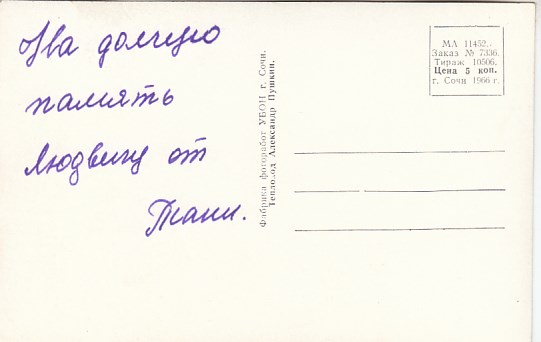 На долгую
память
Людвигу от
Тани.
Фабрика фоторабот УБОН г. Сочи.
Теплоход Александр Пушкин.
МА 11452.
Заказ № 7336.
Тираж 10506.
Цена 5 коп.
г. Сочи 1966 г.